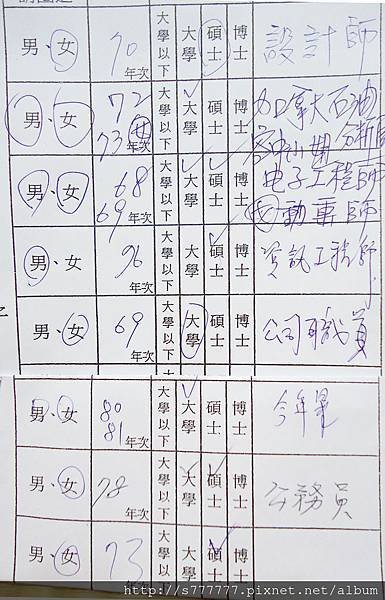 男、女 70 年次 大學以下 大學 碩士 博士 設計師
男、女 72 73 女 年次 大學以下 大學 碩士 博士 加拿大石油分析師 空中小姐
男、女 68 69 年次 大學以下 大學 碩士 博士 电子工程師 動畫師
男、女 96 年次 大學以下 大學 碩士 博士 資訊工程師
男、女 69 年次 大學以下 大學 碩士 博士 公司職員
男、女 80 81 年次 大學以下 大學 碩士 博士
男、女 78 年次 大學以下 大學 碩士 博士 公務員
男、女 73 年次 大學以下 大學 碩士 博士
http://s777777.pixnet.net/album